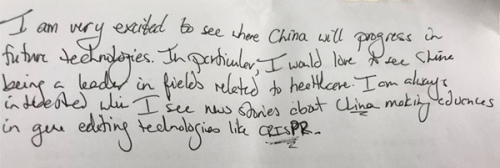 I am very excited to see where China will progress in
future technologies. In particular, I would love to see China
being a leader in fields related to healthcare. I am always
interested when I see news stories about China making advances
in gene editing technologies like CRISPR.